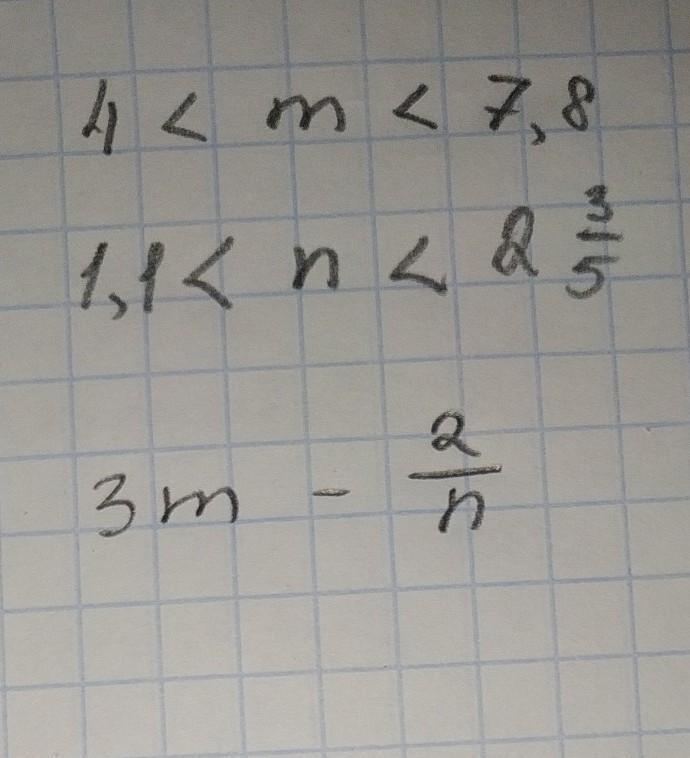 4 < m < 7,8
1,1 < n < 2 3/5
3m - 2/n